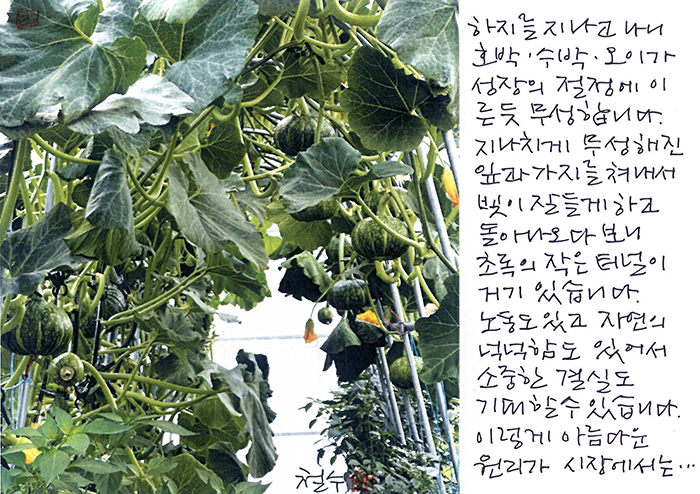 하지를 지나고 나니
호박·수박·오이가
성장의 절정에 이
른듯 무성합니다.
지나치게 무성해진
잎과 가지를 쳐내서
볕이 잘들게 하고
돌아나오다 보니
초록의 작은 터널이
거기 있습니다.
노동도 있고 자연의
넉넉함도 있어서
소중한 결실도
기대할 수 있습니다.
이렇게 아름다운
원리가 시장에서는…
철수